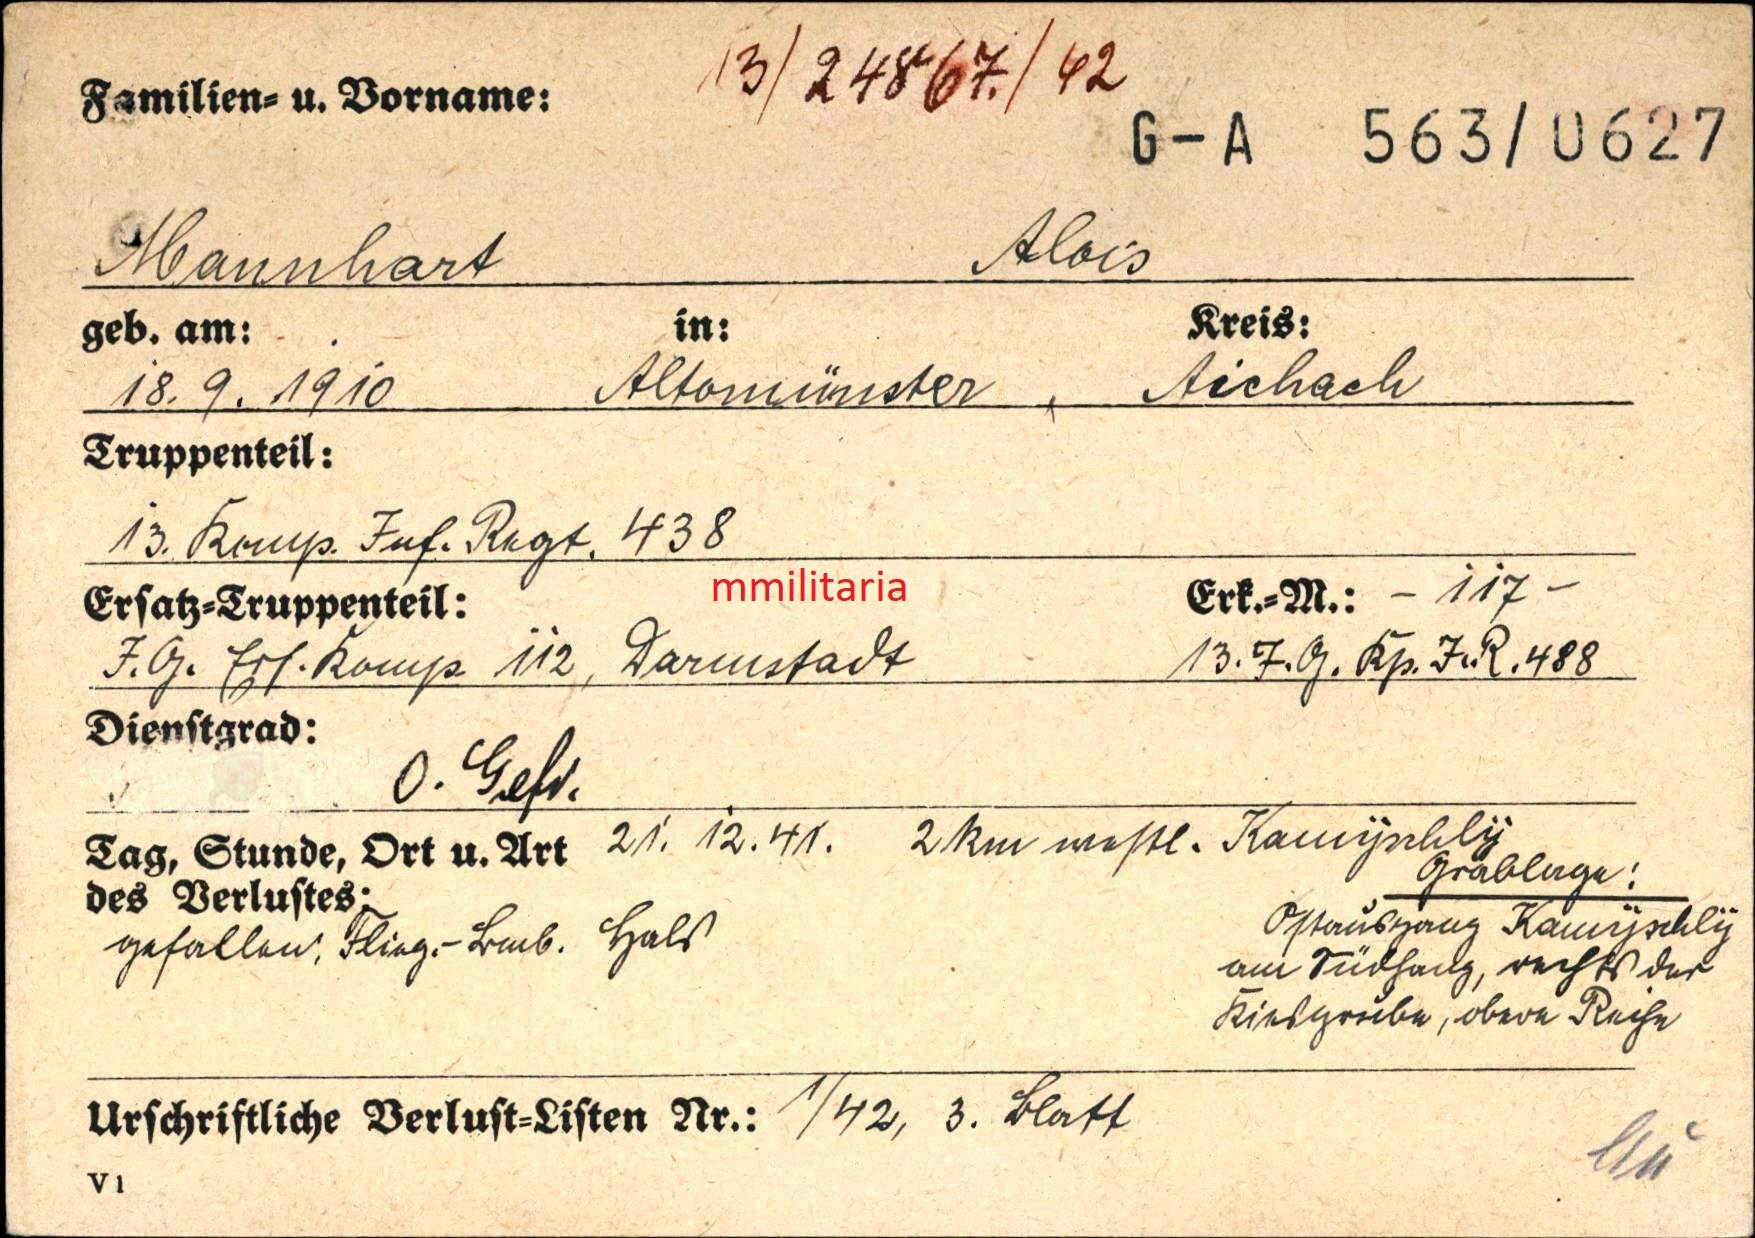 13/24867./42
Familien= u. Vorname:
G-A 563/0627
Mannhart Alois
geb. am: in: Kreis:
18. 9. 1910 Altomünster, Aichach
Truppenteil:
13. Komp. Inf. Regt. 438
mmilitaria
Ersatz=Truppenteil: Erk.=M.: - 117 -
J.G. Ers. Komp. 112, Darmstadt 13. J.G. Kp. J.R. 488
Dienstgrad:
O. Gefr.
Tag, Stunde, Ort u. Art 21. 12. 41. 2 km westl. Kamyschly
des Verlustes: Grablage:
gefallen, Flieg.-Bmb. Hals Ostausgang Kamyschly
am Südhang, rechts der
Kiesgrube, obere Reihe
Urschriftliche Verlust=Listen Nr.: 1/42, 3. Blatt
V 1